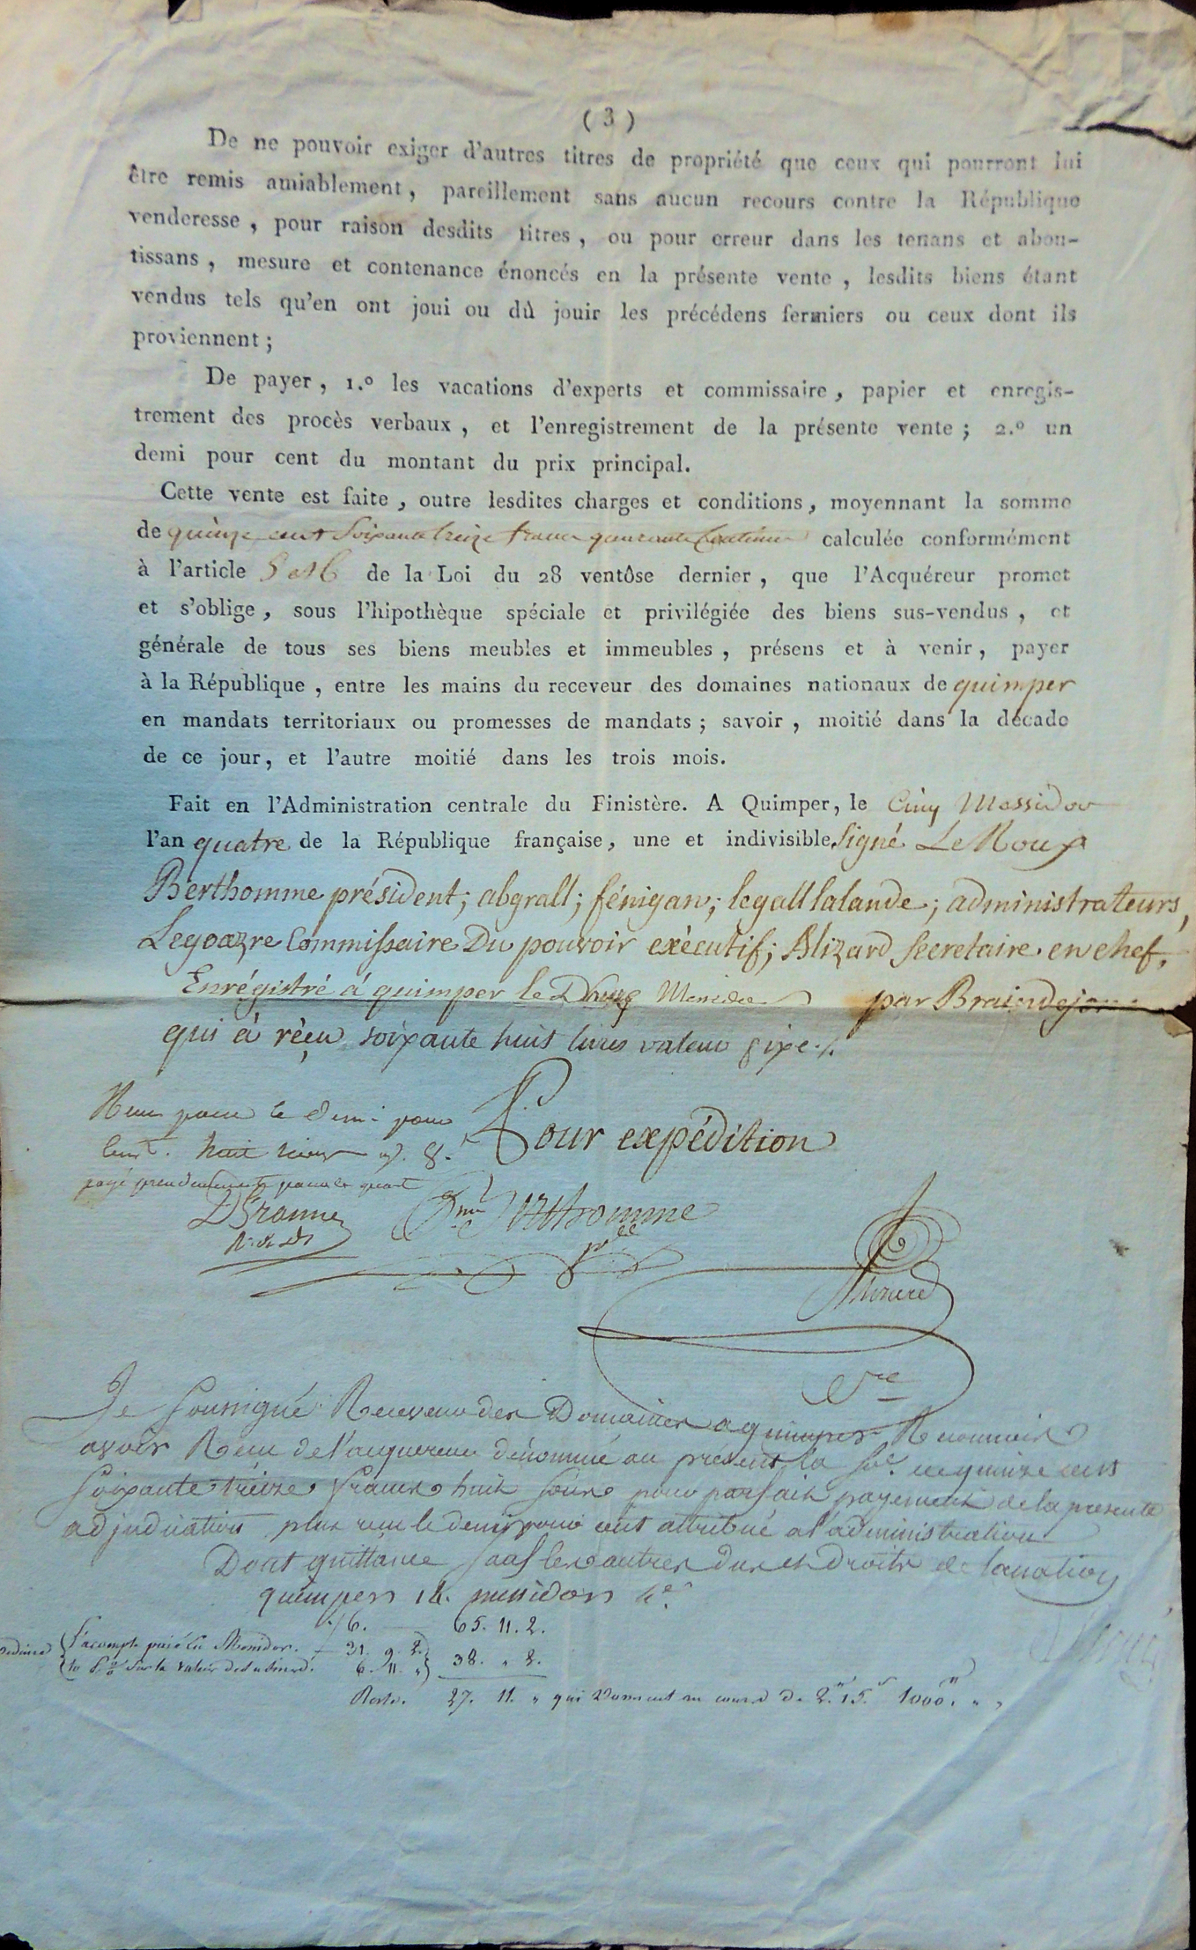 ( 3 )
De ne pouvoir exiger d'autres titres de propriété que ceux qui pourront lui
être remis amiablement, pareillement sans aucun recours contre la République
venderesse, pour raison desdits titres, ou pour erreur dans les tenans et abou-
tissans, mesure et contenance énoncés en la présente vente, lesdits biens étant
vendus tels qu'en ont joui ou dû jouir les précédens fermiers ou ceux dont ils
proviennent;
De payer, 1.º les vacations d'experts et commissaire, papier et enregis-
trement des procès verbaux, et l'enregistrement de la présente vente; 2.º un
demi pour cent du montant du prix principal.
Cette vente est faite, outre lesdites charges et conditions, moyennant la somme
de quinze cent Soixante treize francs quarante Centimes calculée conformément
à l'article 5 et 6 de la Loi du 28 ventôse dernier, que l'Acquéreur promet
et s'oblige, sous l'hipothèque spéciale et privilégiée des biens sus-vendus, et
générale de tous ses biens meubles et immeubles, présens et à venir, payer
à la République, entre les mains du receveur des domaines nationaux de quimper
en mandats territoriaux ou promesses de mandats; savoir, moitié dans la décade
de ce jour, et l'autre moitié dans les trois mois.
Fait en l'Administration centrale du Finistère. A Quimper, le Cinq Messidor
l'an quatre de la République française, une et indivisible. Signé Le Roux
Berthomme président; abgrall; fénigan; legall lalande; administrateurs,
Legoazre Commissaire Du pouvoir exécutif; Alizard Secretaire en chef.
Enrégistré à quimper le Douze Messidor par Braindejonc
qui à réçu soixante huit livres valeur fixe ./.
Pour expédition
Reçu pour le demi pour
Cent. huit
Berthomme
Je Soussigné Receveur des Domaines a quimper Reconnois
avoir Reçu de l'acquereur dénommé au présent la Se. de quinze cent
Soixante treize francs huit Sous pour parfait payement de la presente
adjudication plus reçu le demi pour cent attribué a l'administration
Dont quittance Sauf les autres dus et droits de la nation
quimper 14. messidor 4e.
6. 65. 11. 2.
31. 9. 2.
6. 11. " 38. " 2.
Reste. 27. 11. " qui 1000. " "